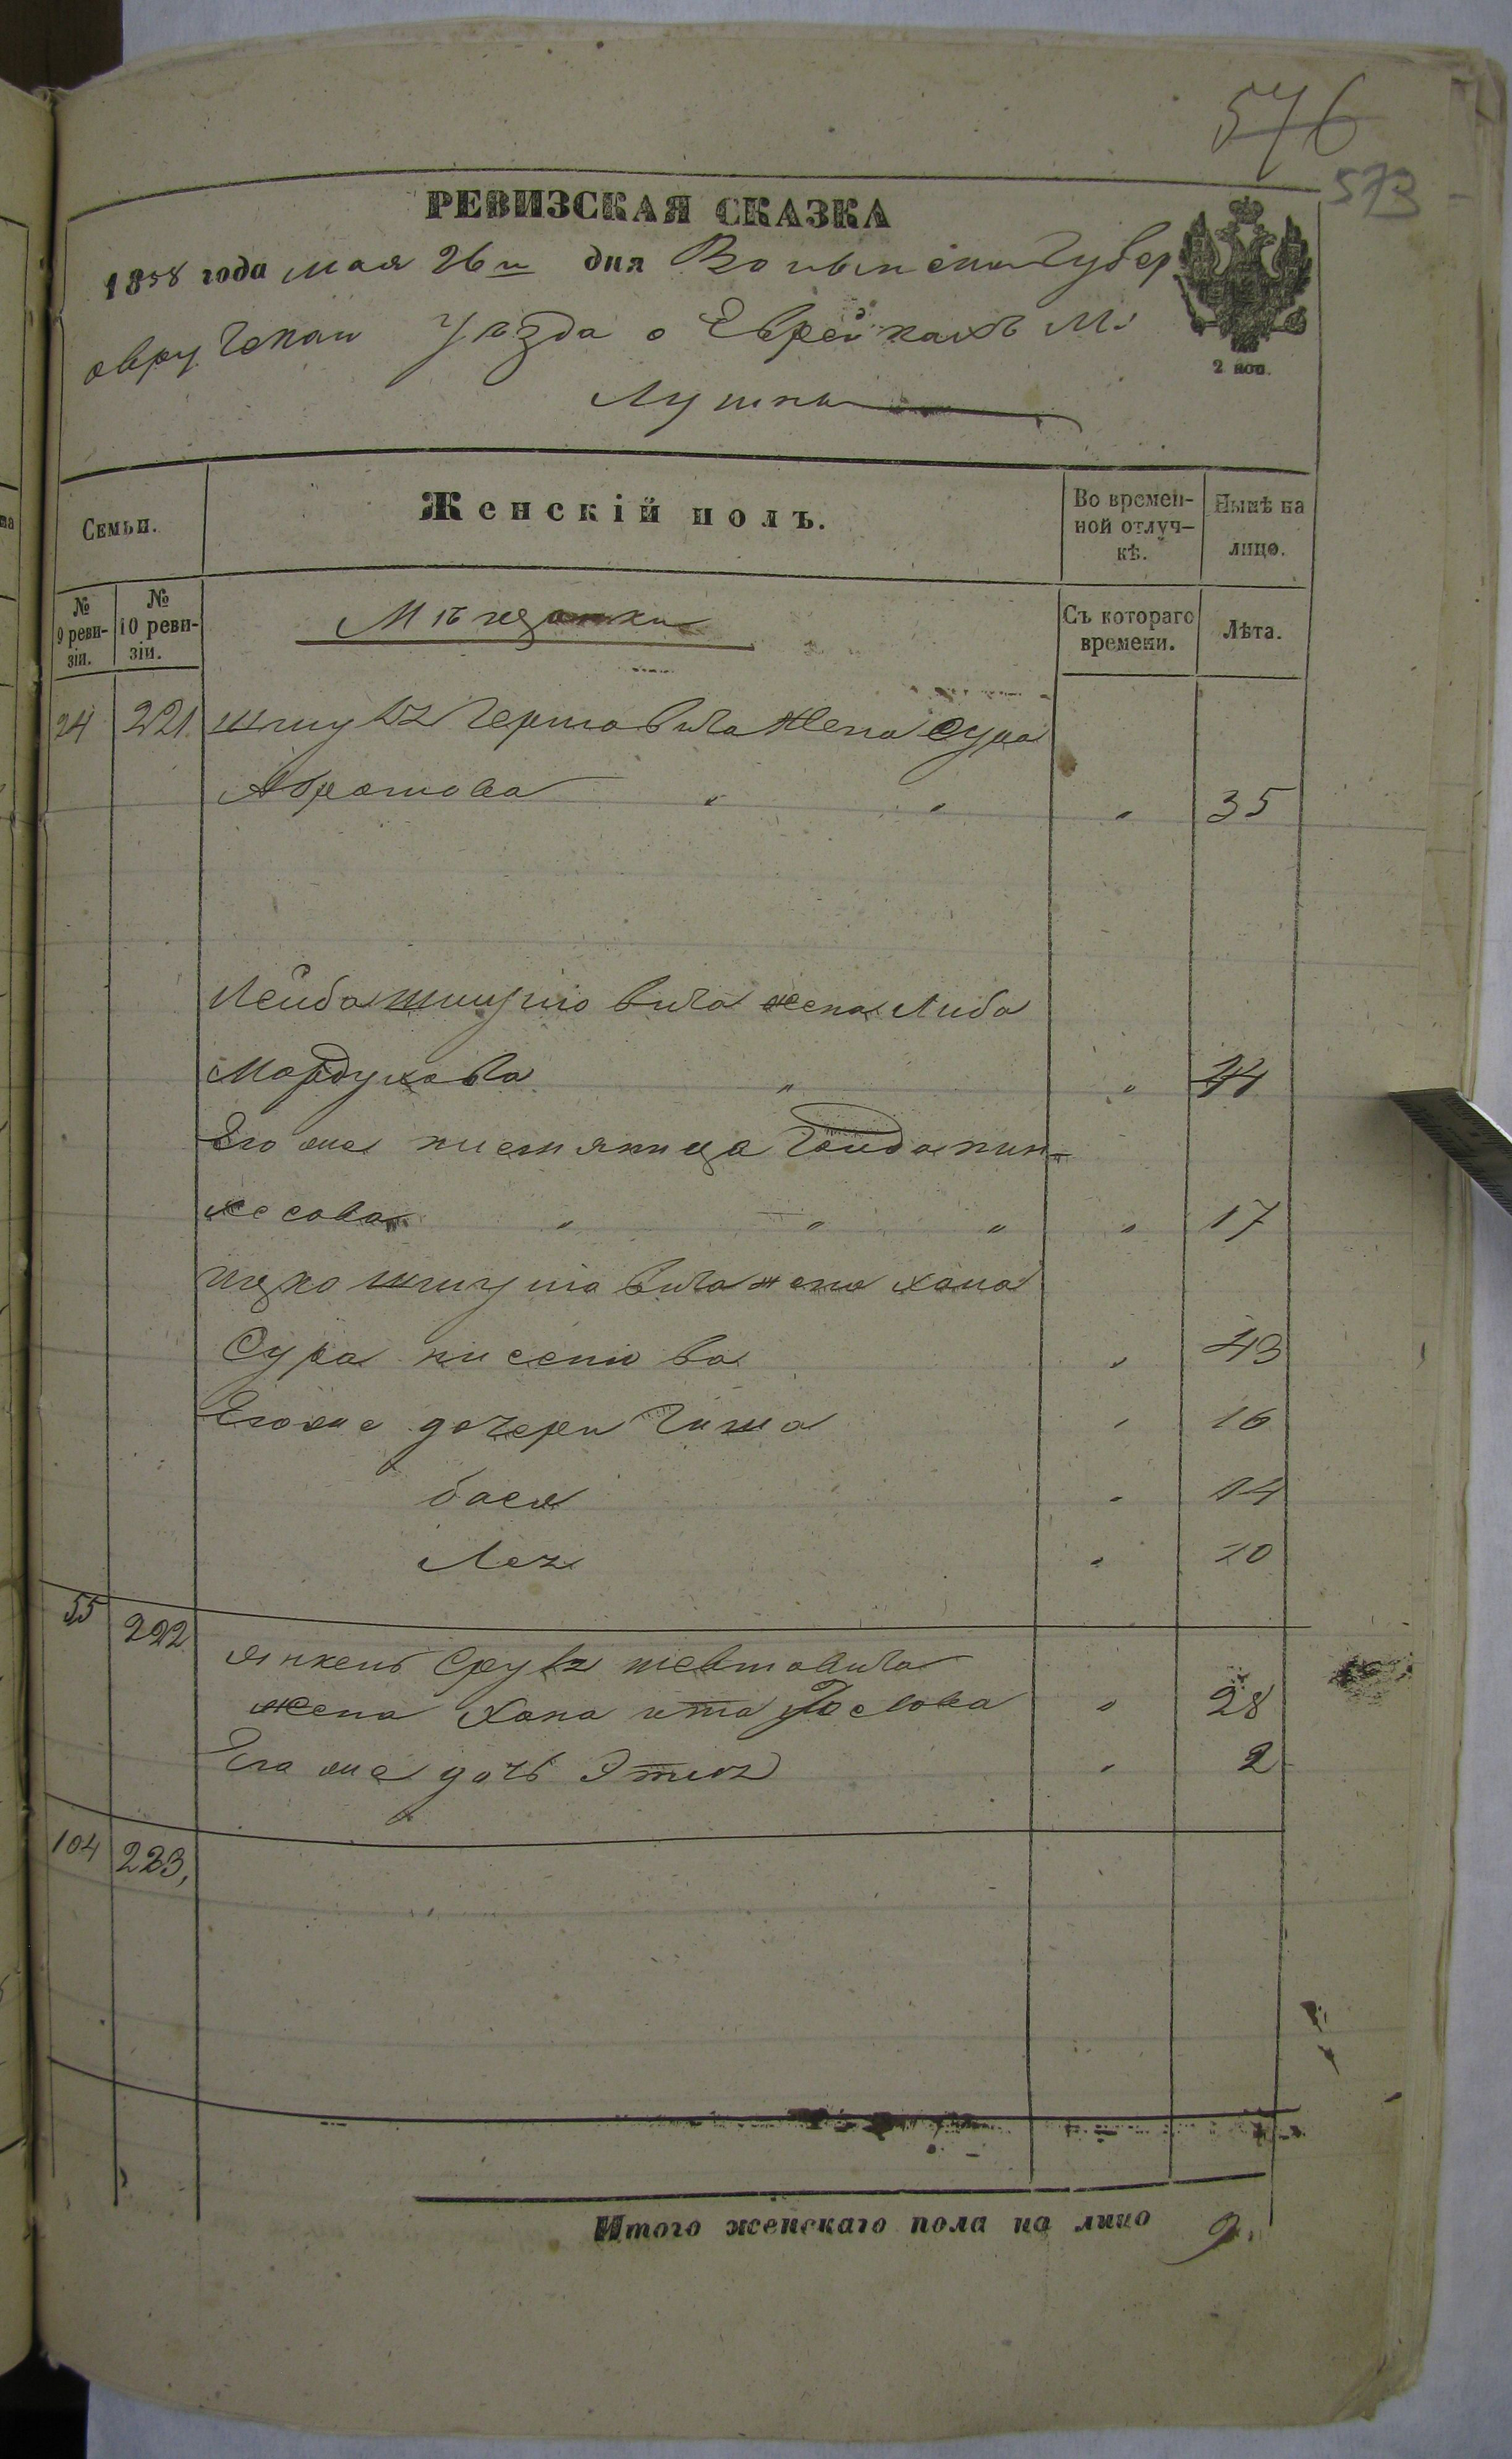 576
573
РЕВИЗСКАЯ СКАЗКА
1858 года мая 26го дня Волынской Губер
овручскаго Уѣзда о Еврейкахъ М:
Лугины
2 коп.
Семьи.
Женскій полъ.
Во времен-
ной отлуч-
кѣ.
Нынѣ на
лицо.
№
9 реви-
зіи.
№
10 реви-
зіи.
Мѣщанки
Съ котораго
времени.
Лѣта.
24 221. Шмуля Гершовича жена Сура
Абрамова " " " 35
Лейба Шмулiовича жена Либа
Мордухова " " 44
Его же племяница Голда пин-
хесова " " " " 17
Ицко Шмулiовича жена хана
Сура " 43
Его же дочери " 16
бася " 14
Лея " 10
55 222 Янкель Сруля
жена Хана " 28
Его же дочь " 2
104 223,
Итого женскаго пола на лицо 9.